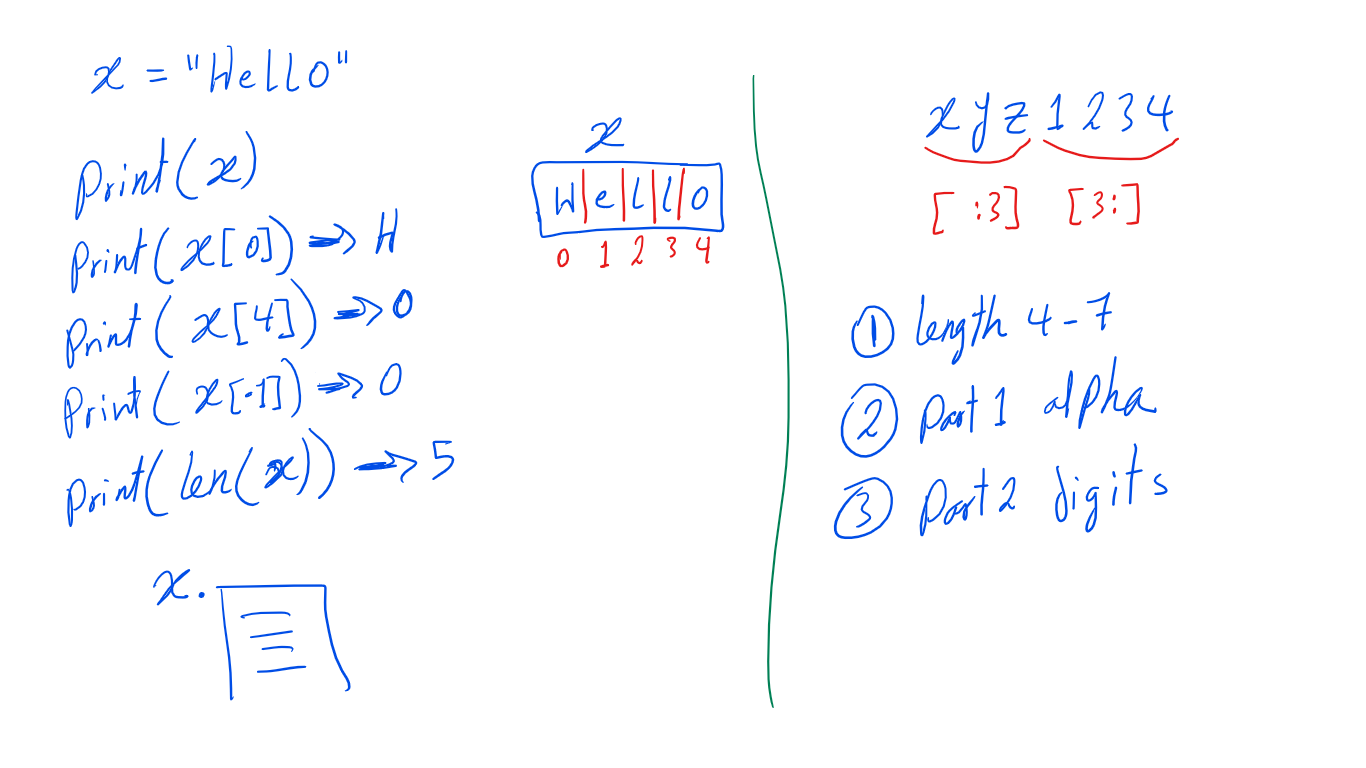 x = "Hello"
Print(x)
Print(x[0]) => H
Print(x[4]) => o
Print(x[-1]) => o
Print(len(x)) => 5
x.
x
H e l l o
0 1 2 3 4
x y z 1 2 3 4
[ :3] [3:]
① length 4-7
② Part 1 alpha
③ Part 2 digits